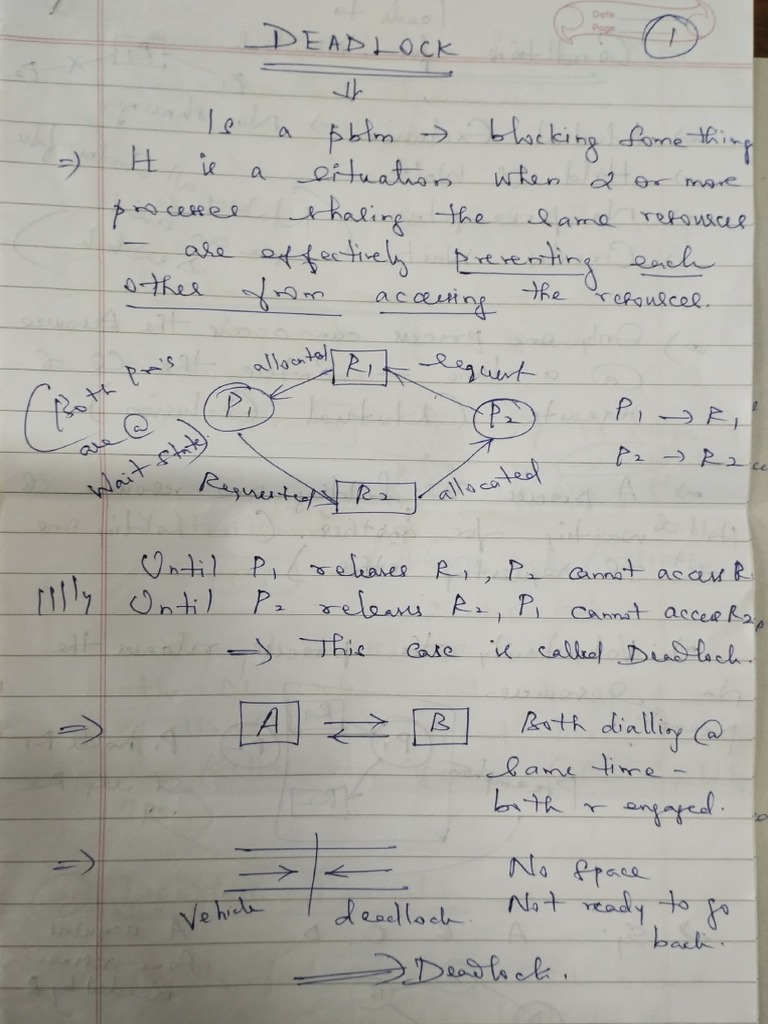 Date
Page
1
DEADLOCK
⇓
Is a pblm → blocking something
⇒ It is a situation when 2 or more
processes sharing the same resources
– are effectively preventing each
other from accessing the resources.
allocated R1 request
(Both pro's are @ wait state)
P1 P2
P1 → R1
P2 → R2
Requested R2 allocated
Until P1 releases R1, P2 cannot access R
|||ly Until P2 releases R2, P1 cannot access R2
⇒ This case is called Deadlock.
⇒ A ⇌ B Both dialling @
same time –
both r engaged.
⇒ → | ← No space
Vehicle deadlock. Not ready to go
back.
⇒ Deadlock.